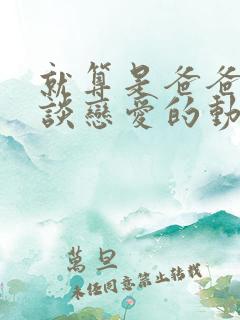 就算是爸爸
談戀愛的動
萬旦
未经同意禁止转载